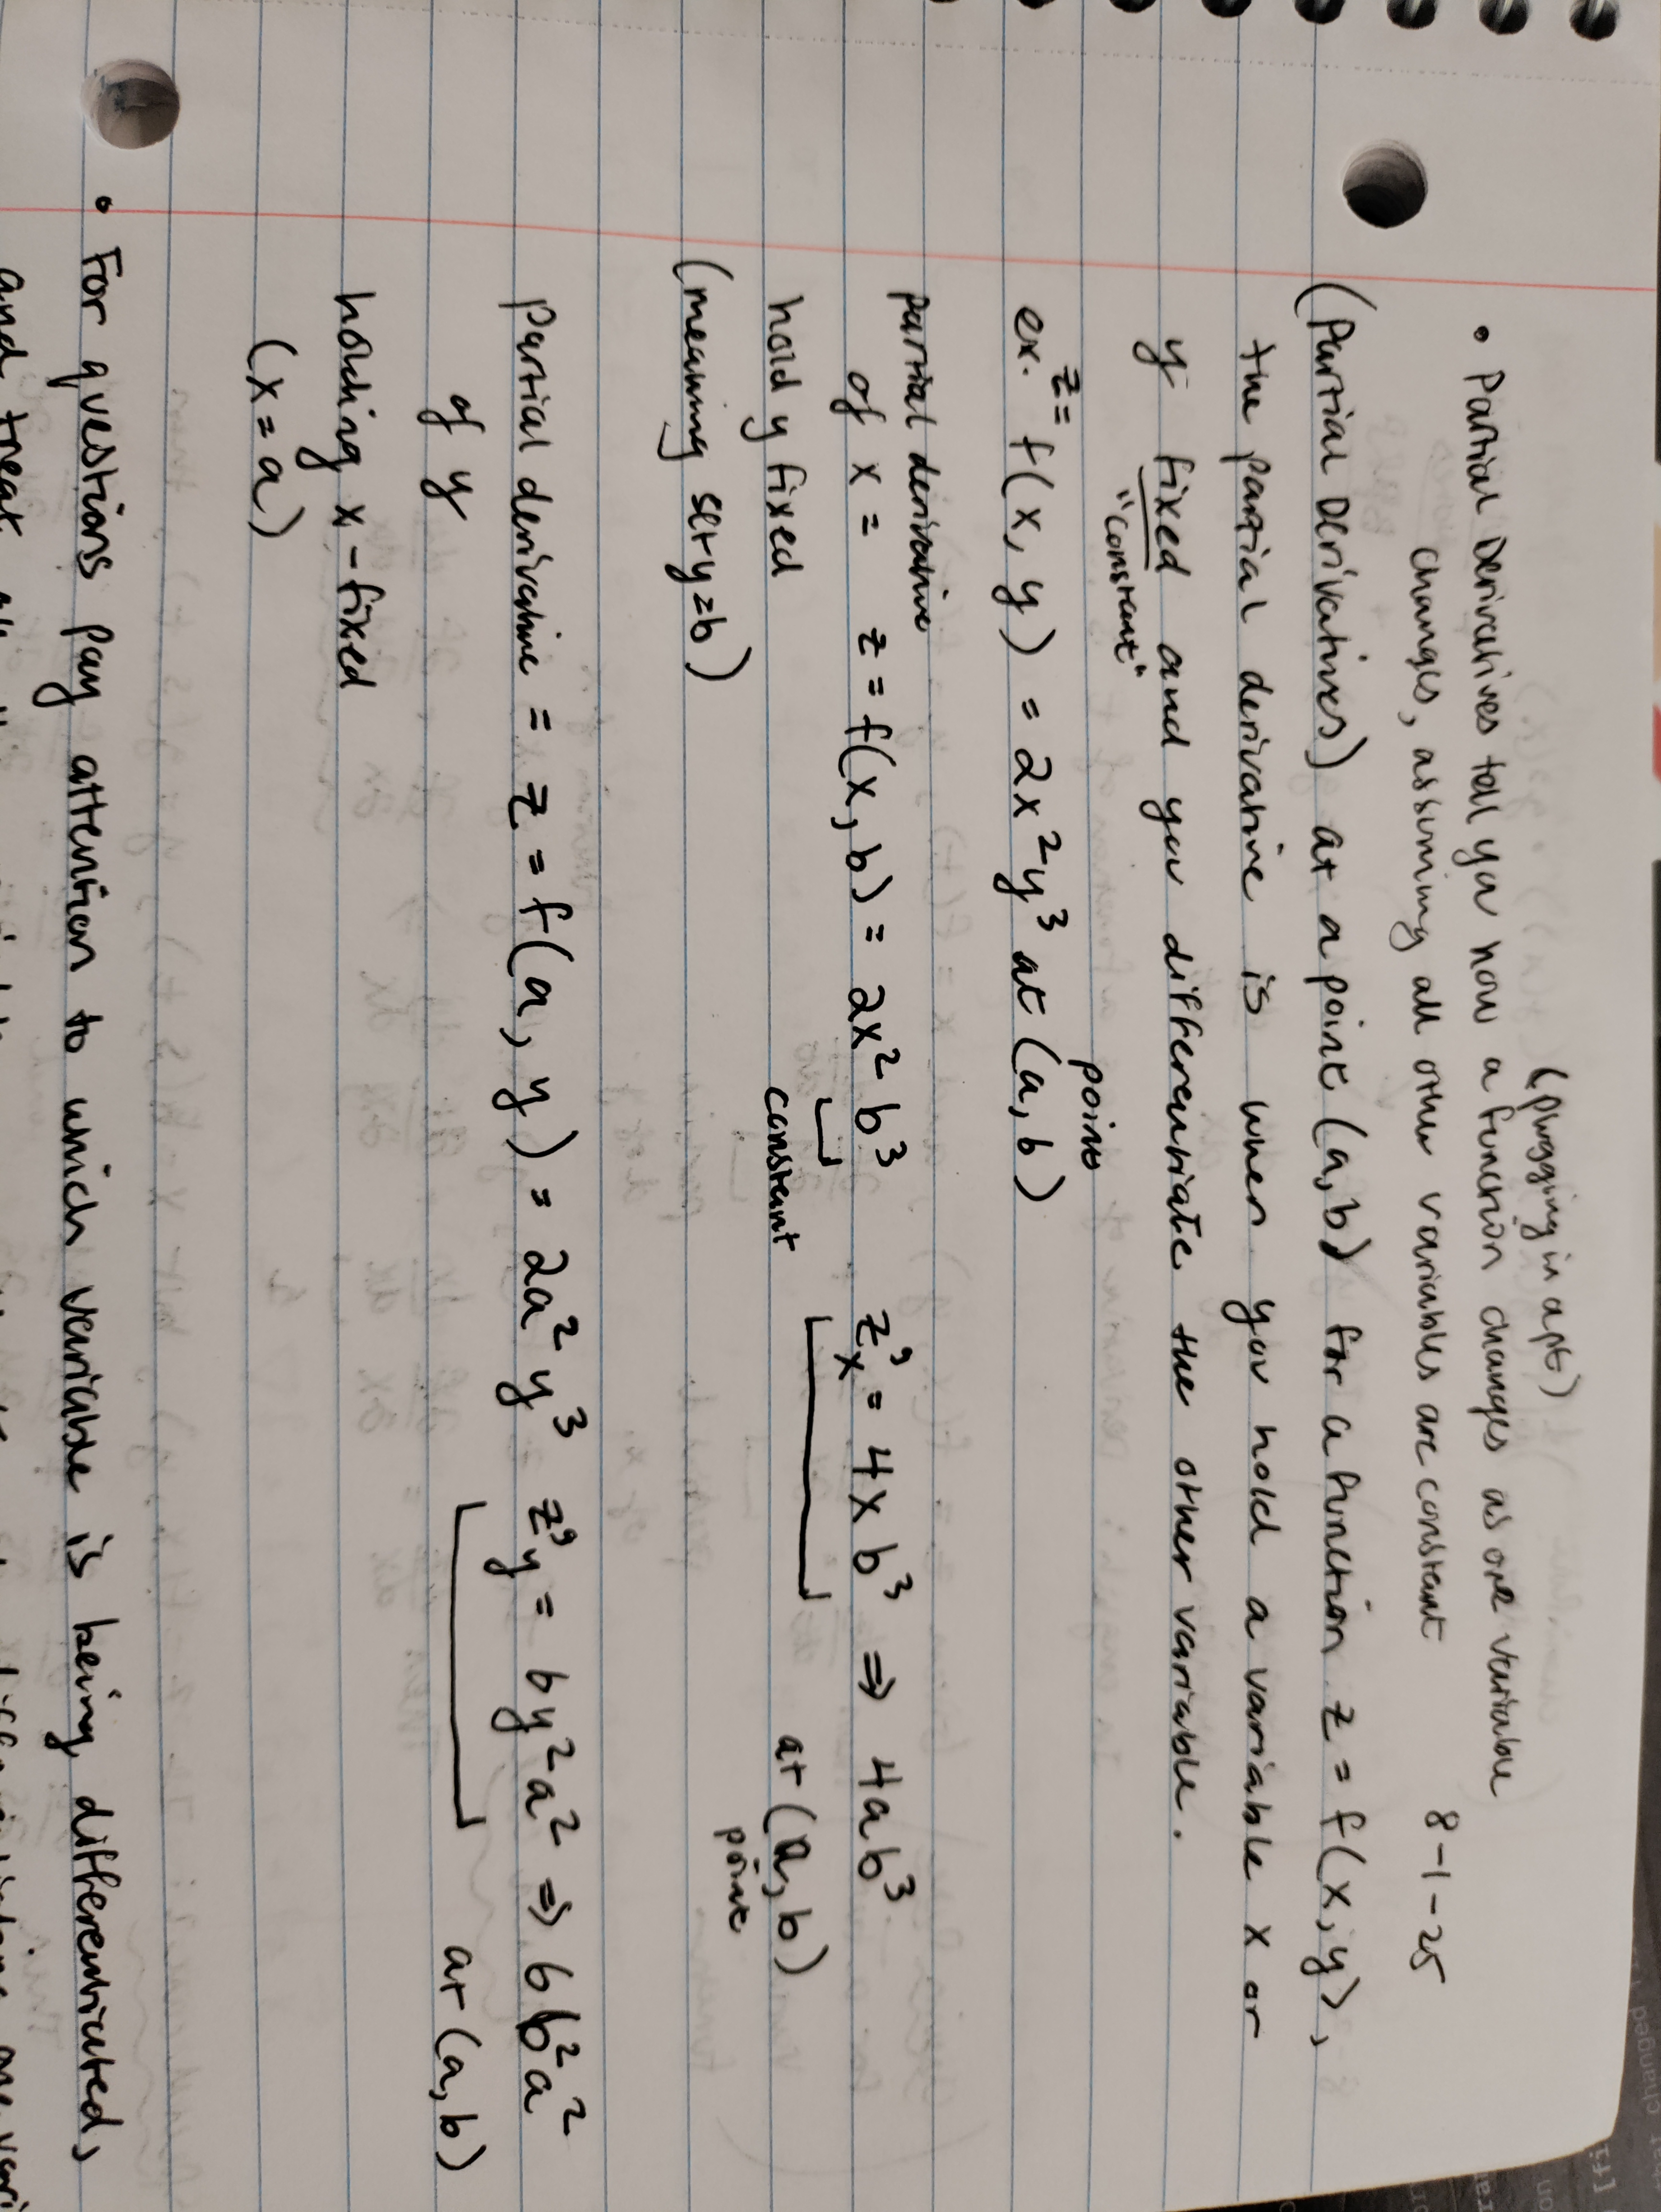 (plugging in a pt)
• Partial Derivatives tell ya how a function changes as one variable
changes, assuming all other variables are constant
8-1-25
(Partial Derivatives) at a point (a,b) for a function z = f(x,y),
the partial derivative is when you hold a variable x or
y fixed and you differentiate the other variable.
"constant"
z=
point
ex. f(x, y) = 2x²y³ at (a,b)
partial derivative
of x = z = f(x,b) = 2x²b³ z'x = 4xb³ ⇒ 4ab³
hold y fixed constant at (a,b)
point
(meaning set y=b)
Partial derivative = z = f(a, y) = 2a²y³ z'y = 6y²a² ⇒ 6b²a²
of y at (a,b)
holding x-fixed
(x=a)
• For questions pay attention to which variable is being differentiated,
and treat